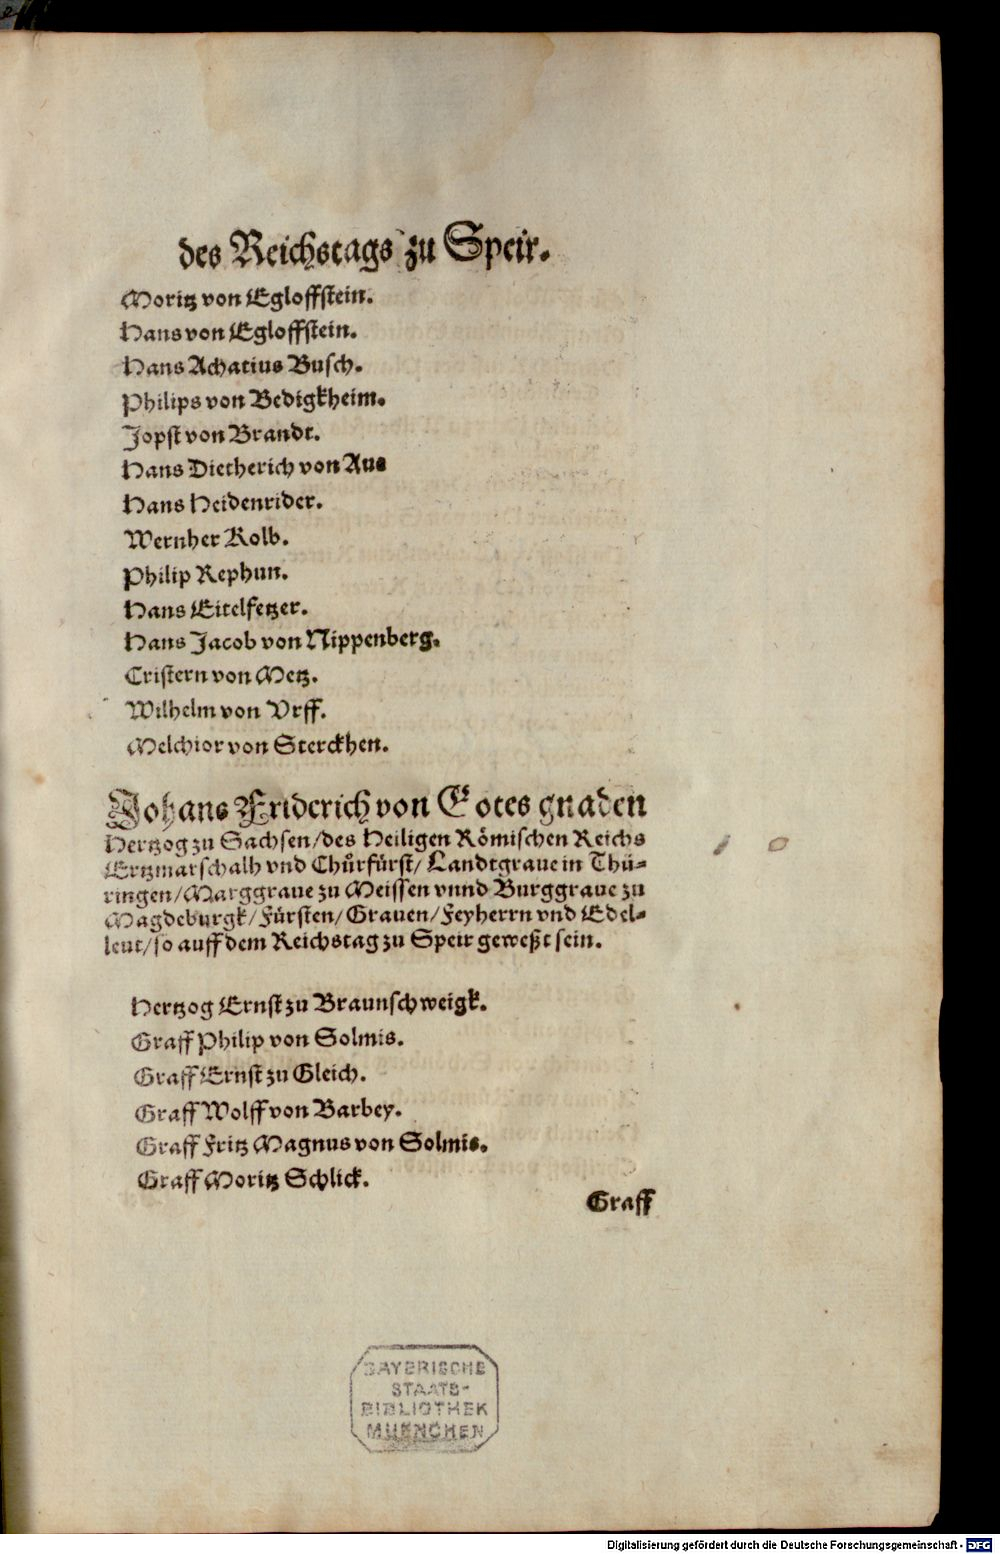 des Reichstags zu Speir.
Moritz von Egloffstein.
Hans von Egloffstein.
Hans Achatius Busch.
Philips von Bedigkheim.
Jopst von Brandt.
Hans Dietherich von Aus
Hans Heidenrider.
Wernher Kolb.
Philip Rephun.
Hans Eitelfetzer.
Hans Jacob von Nippenberg.
Cristern von Metz.
Wilhelm von Vrff.
Melchior von Sterckhen.
Johans Friderich von Gotes gnaden
Hertzog zu Sachsen/des Heiligen Römischen Reichs
Ertzmarschalh vnd Chůrfürst/ Landtgraue in Thü-
ringen/Marggraue zu Meissen vnnd Burggraue zu
Magdeburgk/Fürsten/Grauen/Feyherrn vnd Edel-
leut/so auff dem Reichstag zu Speir geweßt sein.
Hertzog Ernst zu Braunschweigk.
Graff Philip von Solmis.
Graff Ernst zu Gleich.
Graff Wolff von Barbey.
Graff Fritz Magnus von Solmis.
Graff Moritz Schlick.
Graff
BAYERISCHE
STAATS-
BIBLIOTHEK
MUENCHEN
Digitalisierung gefördert durch die Deutsche Forschungsgemeinschaft - DFG